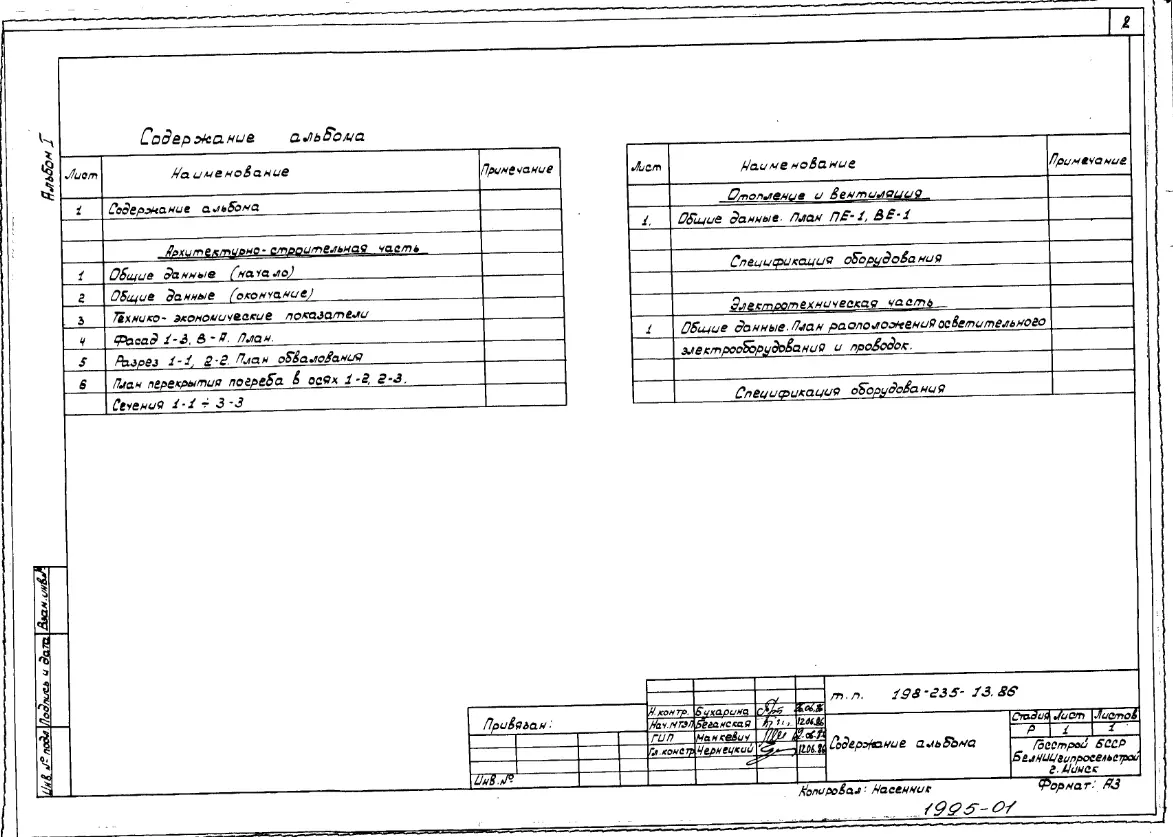 2
Альбом I
Содержание альбома
Лист Наименование Примечание
1 Содержание альбома
Архитектурно-строительная часть
1 Общие данные (начало)
2 Общие данные (окончание)
3 Технико-экономические показатели
4 Фасад 1-3, В-А. План.
5 Разрез 1-1, 2-2. План обвалования
6 План перекрытия погреба в осях 1-2, 2-3.
Сечения 1-1 ÷ 3-3
Лист Наименование Примечание
Отопление и вентиляция
1. Общие данные. План ПЕ-1, ВЕ-1
Спецификация оборудования
Электротехническая часть
1 Общие данные. План расположения осветительного
электрооборудования и проводок.
Спецификация оборудования
Взам.инв.№
Подпись и дата
Инв. № подл
Привязан:
Инв.№
Н.контр. Бухарина
Нач.НТЭП Беганская 12.06.86
ГИП Манкевич
Гл.констр Чернецкий 12.06.86
т.п. 198-235-13.86
Содержание альбома
Стадия Лист Листов
Р 1 1
Госстрой БССР
БелНИИгипросельстрой
г. Минск
Копировал: Насенник
Формат: А3
1995-01